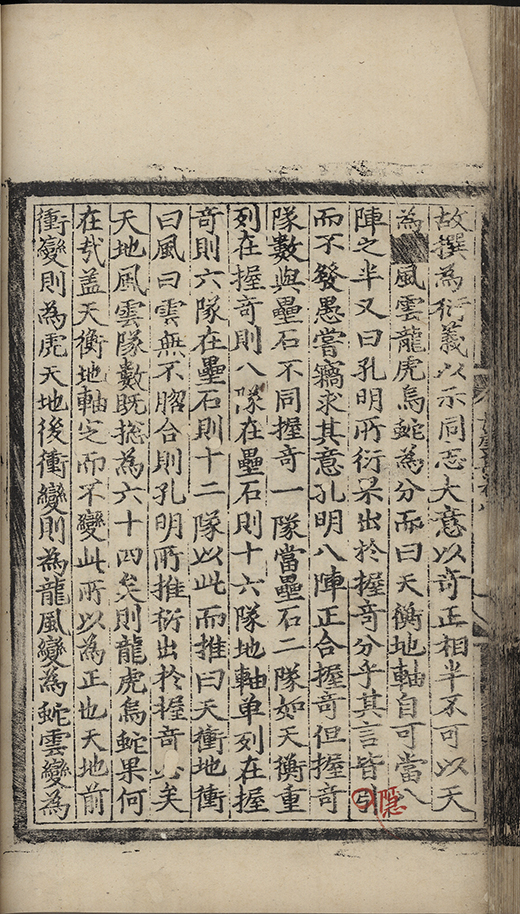 故撰為衍義以示同志大意以奇正相半不可以天
為風雲龍虎鳥蛇為分而曰天衡地軸自可當八
陣之半又曰孔明所衍不出於握奇分乎其言皆引
隱
而不發愚嘗竊求其意孔明八陣正合握奇但握奇
隊數與壘石不同握奇一隊當壘石二隊如天衡重
列在握奇則八隊在壘石則十六隊地軸单列在握
奇則六隊在壘石則十二隊以此而推曰天衝地衝
曰風曰雲無不脗合則孔明所推衍出於握奇必矣
天地風雲隊數既揔為六十四矣則龍虎鳥蛇果何
在㢤盖天衡地軸定而不變此所以為正也天地前
衝變則為虎天地後衝變則為龍風變為蛇雲變為